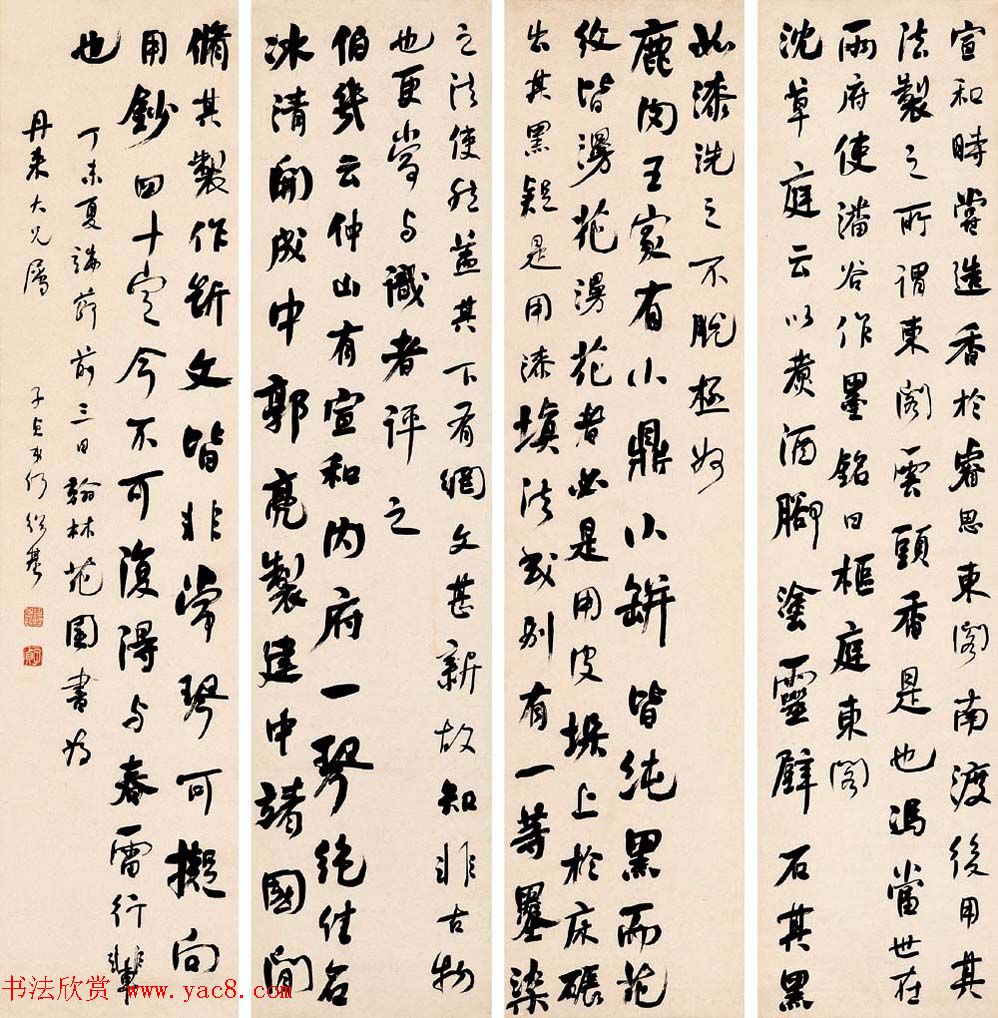 宣和時常造香於睿思東閣南渡後用其
法製之所謂東閣雲頭香是也馮當世在
兩府使潘谷作墨銘曰樞庭東閣
沈草庭云以煮酒腳塗靈壁石其黑
如漆洗之不脫極妙
鹿肉王家有小鼎小缾皆純黑而花
紋皆漫花漫花者必是用皮垛上於床碾
出其黑疑是用漆填法或別有一等墨染
之法使然蓋其下有網文甚新故知非古物
也更當与識者評之
伯幾云仲山有宣和內府一琴絕佳名
冰清開成中郭亮製建中靖國間
脩其製作斷文皆非常琴可擬向
用鈔四十定今不可復得与春雷行輩
也
丁未夏端節前三日翰林花園書為
丹來大兄屬
子貞弟何紹基
书法欣赏 www.yac8.com